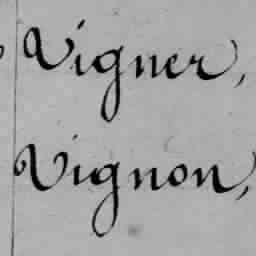 Vigner,
Vignon,